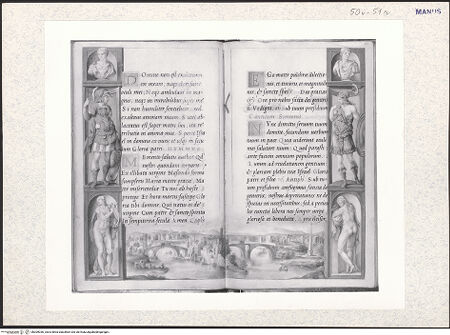 50v-51r
MANUS
Domine non est exaltatum
cor meum, neq; elati sunt
oculi mei; Neq; ambulavi in ma-
gnis, neq; in mirabilibus super me
Si non humiliter sentiebam, sed
exaltavi animam meam. Sicut ab-
lactatus est super matre sua, ita re-
tributio in anima mea. Speret Isra-
el in domino ex nunc et usq; in secu-
lum Gloria patri. HYMNUS.
Memento salutis auctor Qd
nostri quondam corporis
Ex illibata virgine Nascendo formã
sumpseris Maria mater gratiæ, Ma-
ter misericordiæ Tu nos ab hoste
protege Et hora mortis suscipe Glo-
ria tibi domine, Qui natus es de
virgine Cum patre & sancto spiritu
In sempiterna secula Amen
Ego mater pulchræ dilectio-
nis, et timoris, et magnitudi-
nis, & sanctæ spei. Deo gratias
Ora pro nobis sancta dei genetrix
Sub tuum præsidium
Canticum Simeonis
Nunc dimittis servum tuum
domine, secundum verbum
tuum in pace Quia viderunt oculi
mei salutare tuum Quod parasti
ante faciem omnium populorum
Lumen ad revelationem gentium,
& gloriam plebis tuæ Israel Gloria
patri et filio Antiph. Sub tuum
præsidium confugimus sancta dei
genetrix, nostras deprecationes ne de-
spicias in necessitatibus, sed a pericu-
lis cunctis libera nos semper virgo
gloriosa et benedicta.